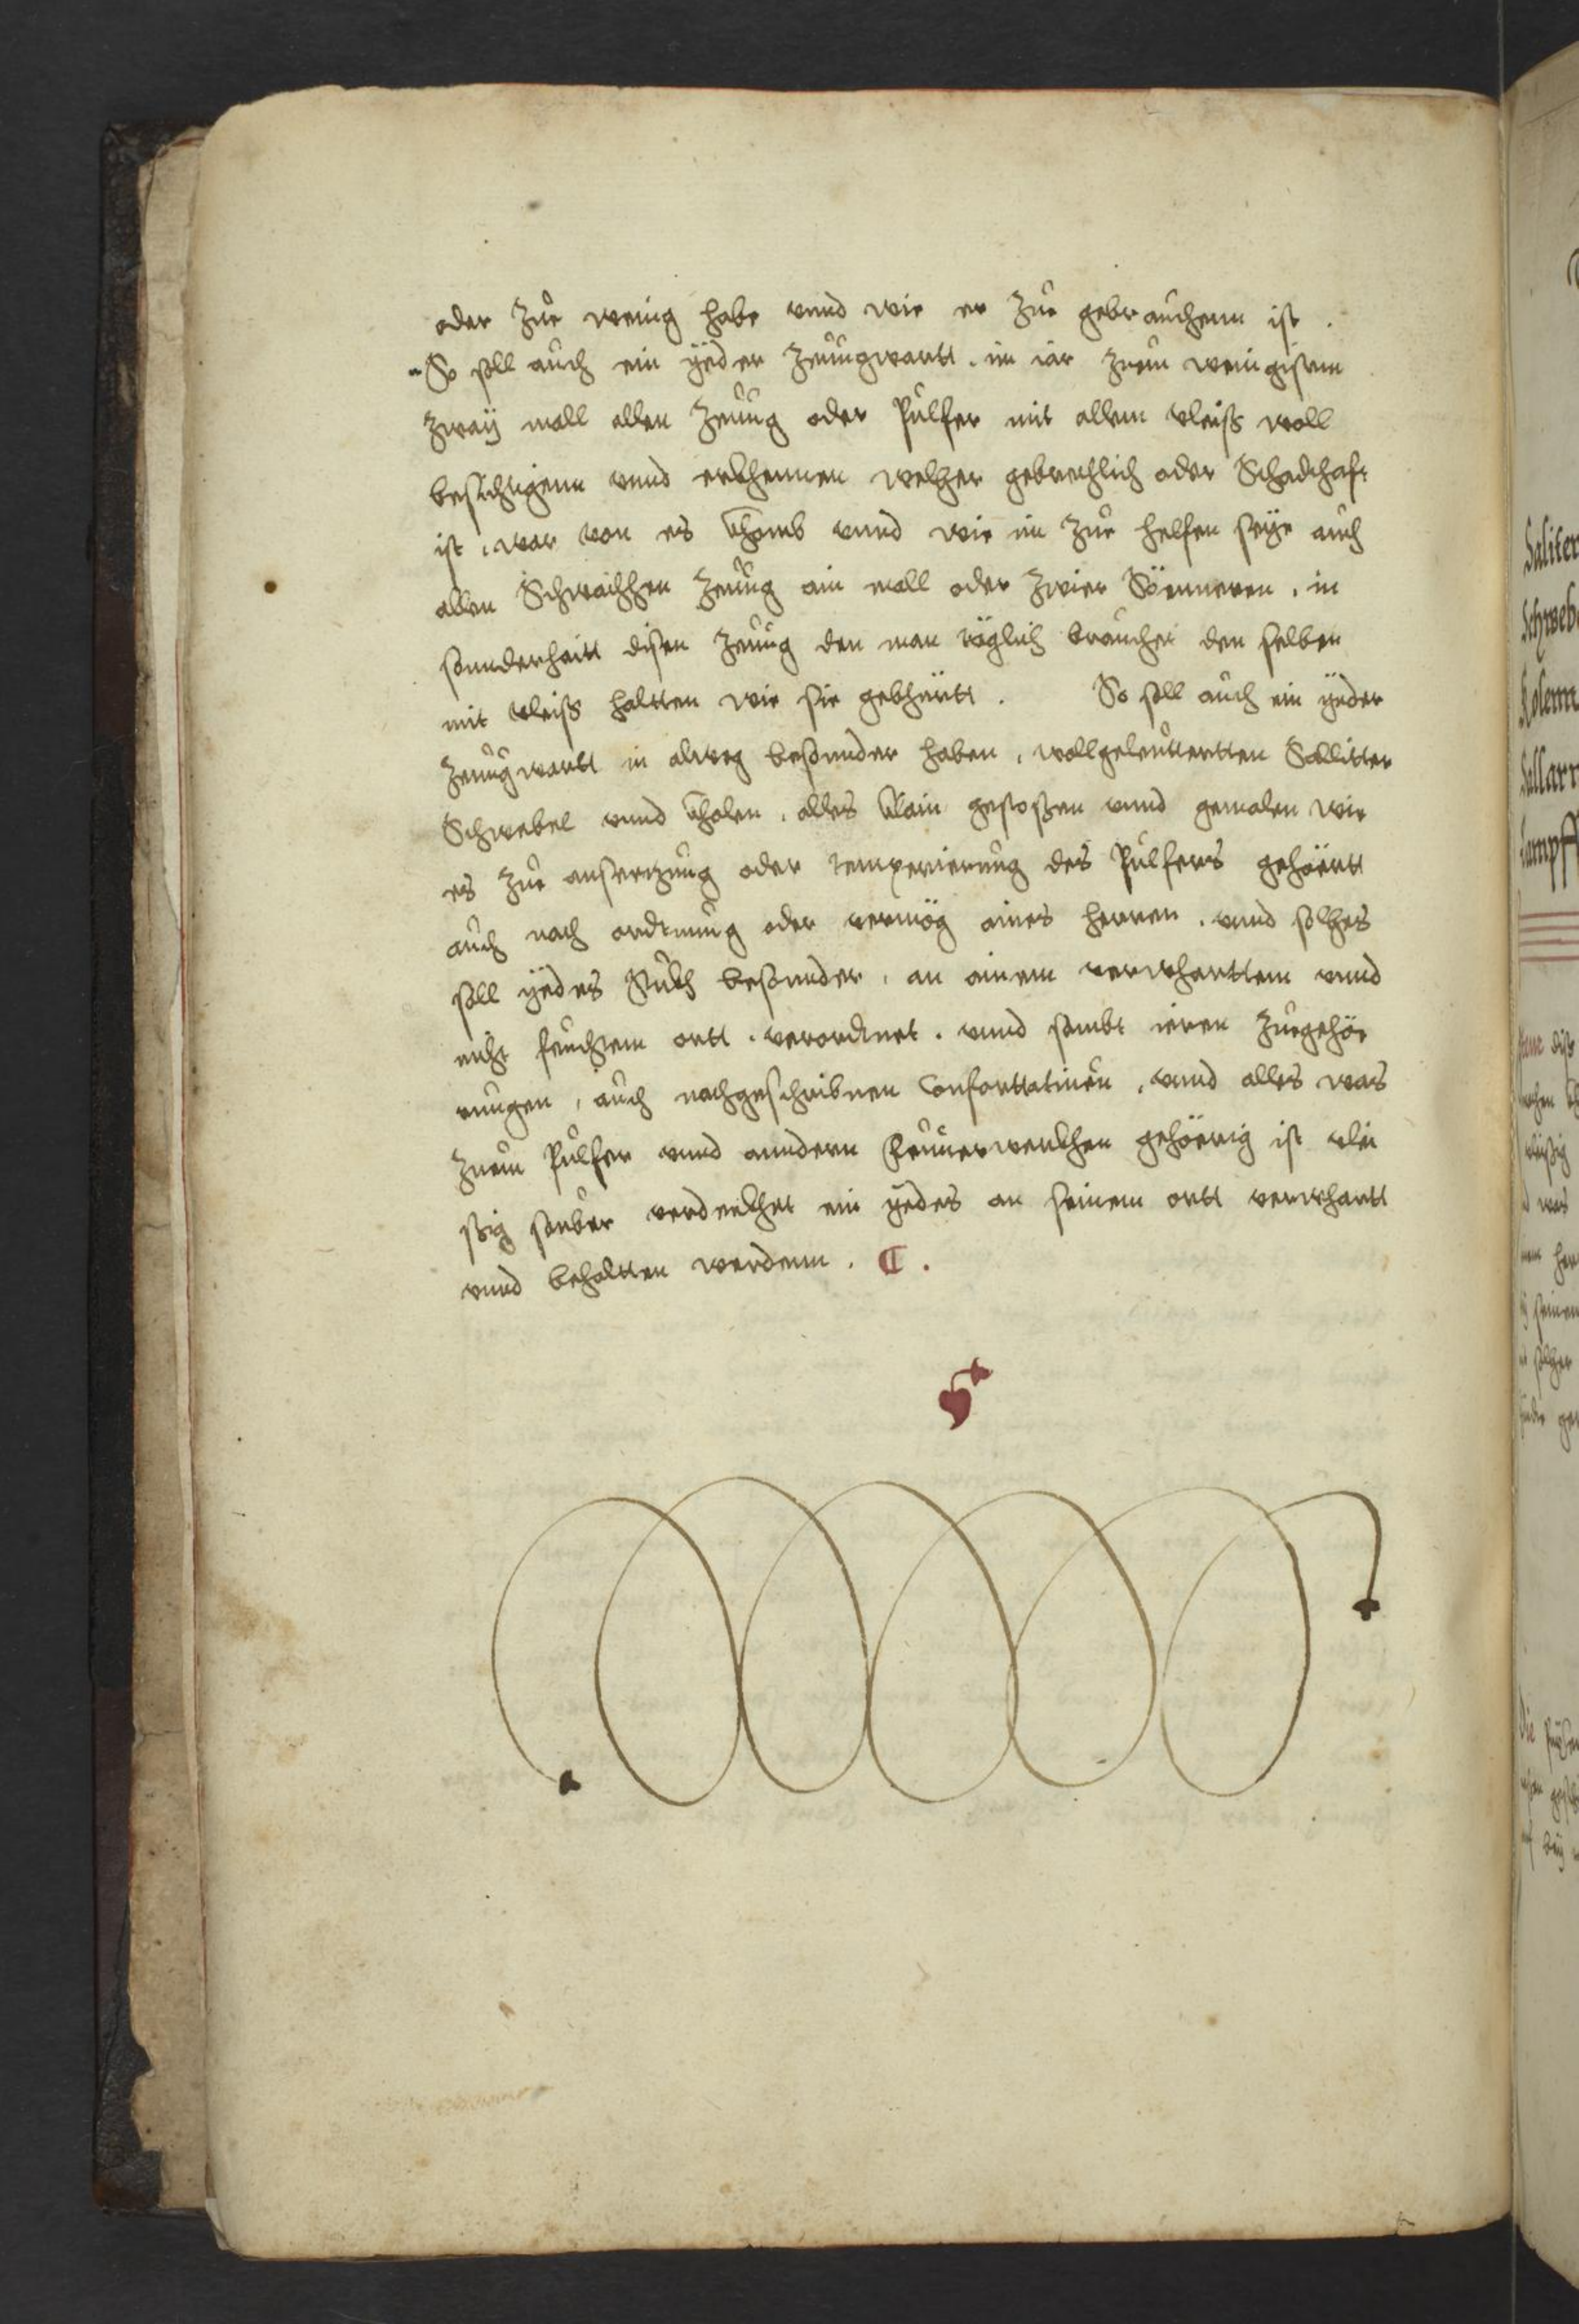 oder zue wenig habe vnnd wie er zue gebrauchenn ist .
So soll auch ein yeder Zeuugwartt . im iar zuem wenigistenn
zway mall allen Zeuug oder Pulfer mit allem vleiss woll
besichtigenn vnnd erkhennen welcher gebrechlich oder Schadhaft
ist . war von es khomb vnnd wie im zue helfen seye auch
allen Schwachhen Zeuug ain mall oder zwier Sönneren . in
sonnderhaitt disen Zeuug den man täglich brauchet den selben
mit vleiss haltten wie sie gebhürtt . So soll auch ein yeder
Zeuugwartt in alweg besonnder haben , wollgeleutterten Sallitter
Schwebel vnnd kholen . alles klain gestossen vnnd gemalen wie
es zue ansetzung oder temperierung des Pulfers gehörtt
auch nach ordnung oder vermög aines herren . vnnd solhes
soll yedes stükh besonnder , an ainem verwharttem vnnd
nicht feuchtem ortt . verordnet . vnnd sambt ieren zuegehö
rungen , auch nachgeschribnen Confortatiuen , vnnd alles was
zuem Pulfer vnnd anndern Feuuerwerkhen gehöerig ist vlei
ssig sauber verdeckhet ein yedes an seinem ortt verwhartt
vnnd behaltten werdenn .
Saliter